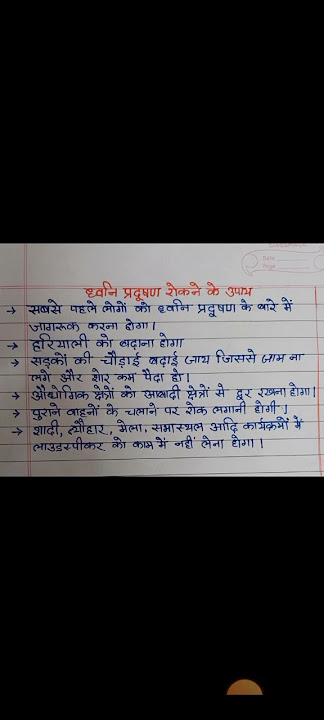 Date
Page
ध्वनि प्रदूषण रोकने के उपाय
→ सबसे पहले लोगों को ध्वनि प्रदूषण के बारे में
जागरूक करना होगा।
→ हरियाली को बढ़ाना होगा
→ सड़कों की चौड़ाई बढ़ाई जाय जिससे जाम ना
लगे और शोर कम पैदा हो।
→ औद्योगिक क्षेत्रों को आबादी क्षेत्रों से दूर रखना होगा।
→ पुराने वाहनों के चलाने पर रोक लगानी होगी।
→ शादी, त्यौहार, मेला, सभास्थल आदि कार्यक्रमों में
लाउडस्पीकर को काम में नहीं लेना होगा।